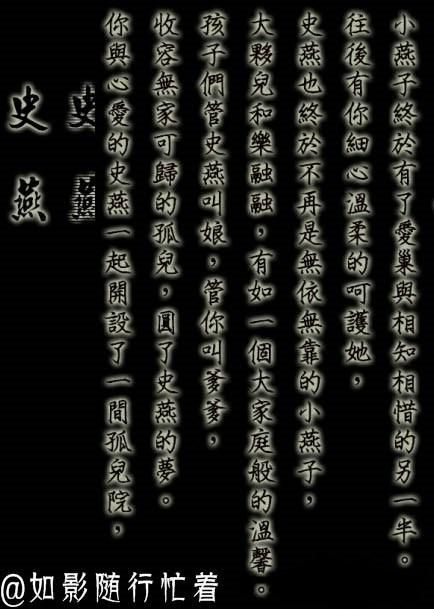 史燕
史燕
你與心愛的史燕一起開設了一間孤兒院，
收容無家可歸的孤兒，圓了史燕的夢。
孩子們管史燕叫娘，管你叫爹爹，
大夥兒和樂融融，有如一個大家庭般的溫馨。
史燕也終於不再是無依無靠的小燕子，
往後有你細心溫柔的呵護她，
小燕子終於有了愛巢與相知相惜的另一半。
@如影随行忙着